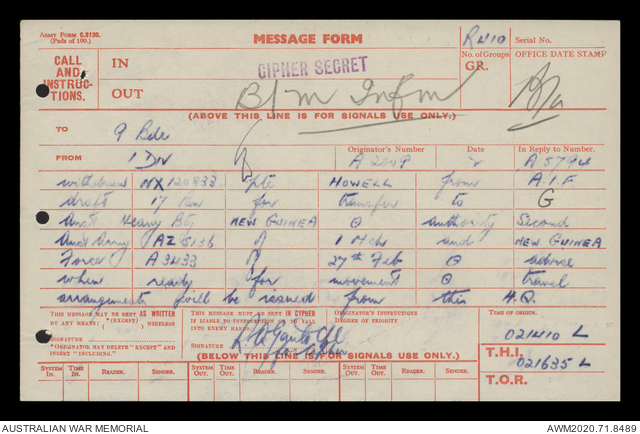 Army Form C.2136.
(Pads of 100.)
MESSAGE FORM
R410
Serial No.
CALL
AND
INSTRUC-
TIONS.
IN
CIPHER SECRET
No. of Groups
GR.
OFFICE DATE STAMP
OUT
B/m Infm
(ABOVE THIS LINE IS FOR SIGNALS USE ONLY.)
TO 9 Bde
Originator's Number Date In Reply to Number.
FROM 1 DIV A2009 2 A5794
withdraw NX120833 pte HOWELL from A.I.F
draft 17 for transfer to G
Aust Heavy Bty NEW GUINEA O authority Second
Aust Army AZ5136 of 1 Mch and NEW GUINEA
Force A3433 of 27th Feb O advice
when ready for movement O travel
arrangements will be issued from this H.Q.
THIS MESSAGE MAY BE SENT AS WRITTEN
BY ANY MEANS (EXCEPT) WIRELESS
SIGNATURE
"ORIGINATOR MAY DELETE "EXCEPT" AND
INSERT "INCLUDING."
THIS MESSAGE MUST BE SENT IN CIPHER
IF LIABLE TO INTERCEPTION OR TO FALL
INTO ENEMY HANDS.
SIGNATURE
ORIGINATOR'S INSTRUCTIONS
DEGREE OF PRIORITY
TIME OF ORIGIN.
021410 L
(BELOW THIS LINE IS FOR SIGNALS USE ONLY.)
T.H.I.
021635 L
T.O.R.
SYSTEM IN. TIME IN. READER. SENDER. SYSTEM OUT. TIME OUT. READER. SENDER. SYSTEM OUT. TIME OUT. READER. SENDER.
AUSTRALIAN WAR MEMORIAL
AWM2020.71.8489